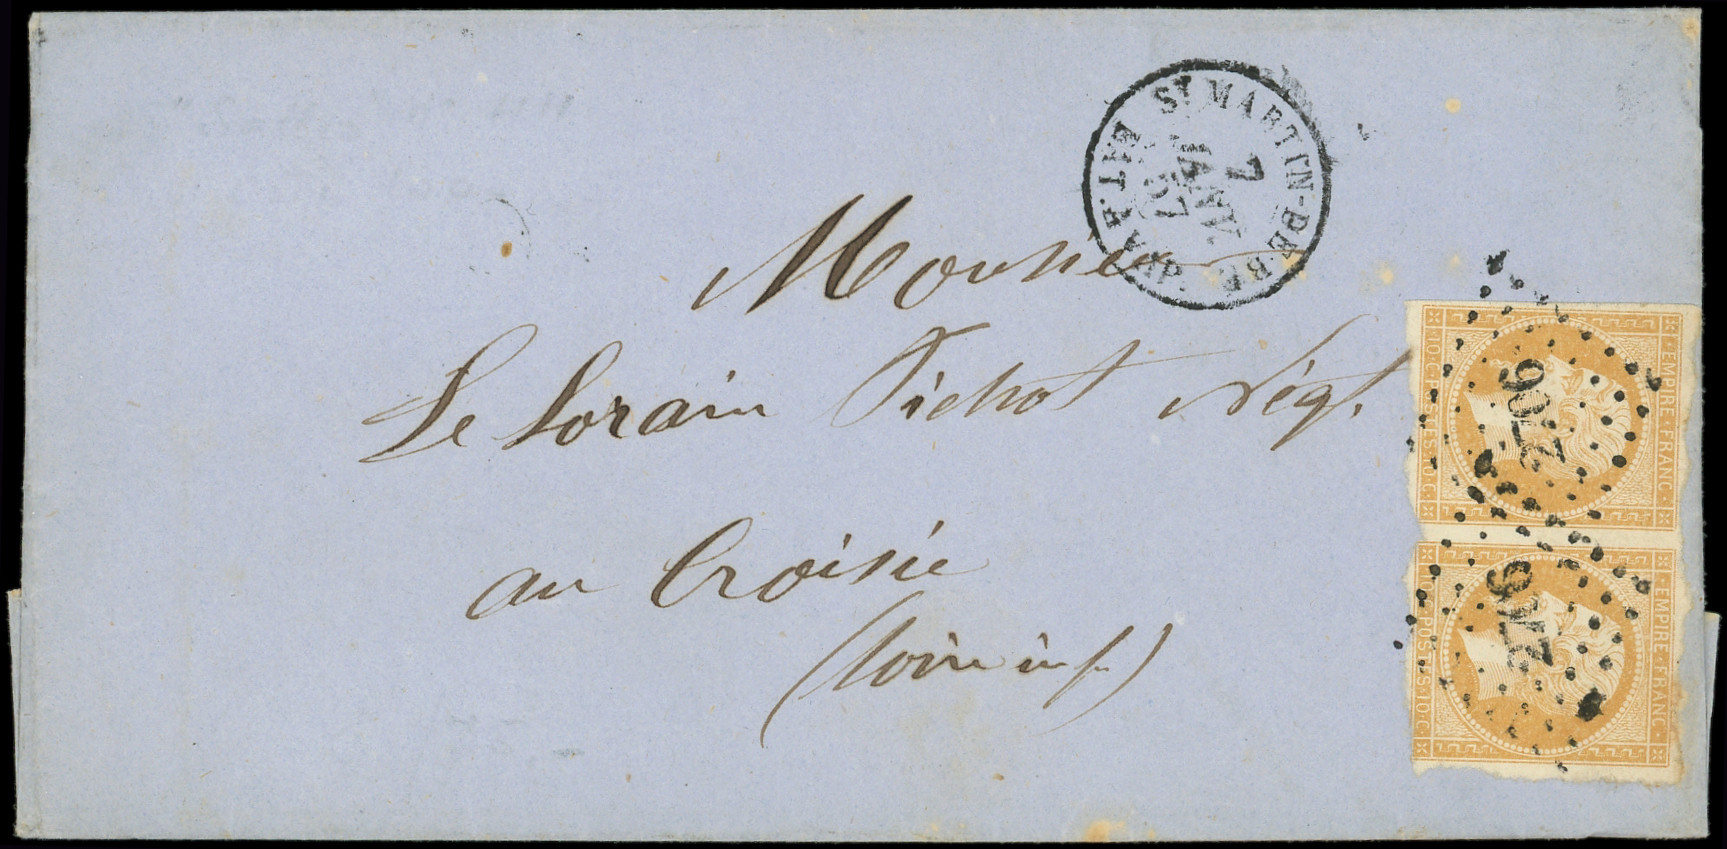 ST MARTIN-DE-RE
7
JANV.
57
Monsieur
Le Lorain Pichot Négt.
au Croisic
(Loire inf)
EMPIRE·FRANC·
10·C·POSTES·10·C·
2706
EMPIRE·FRANC·
10·C·POSTES·10·C·
2706